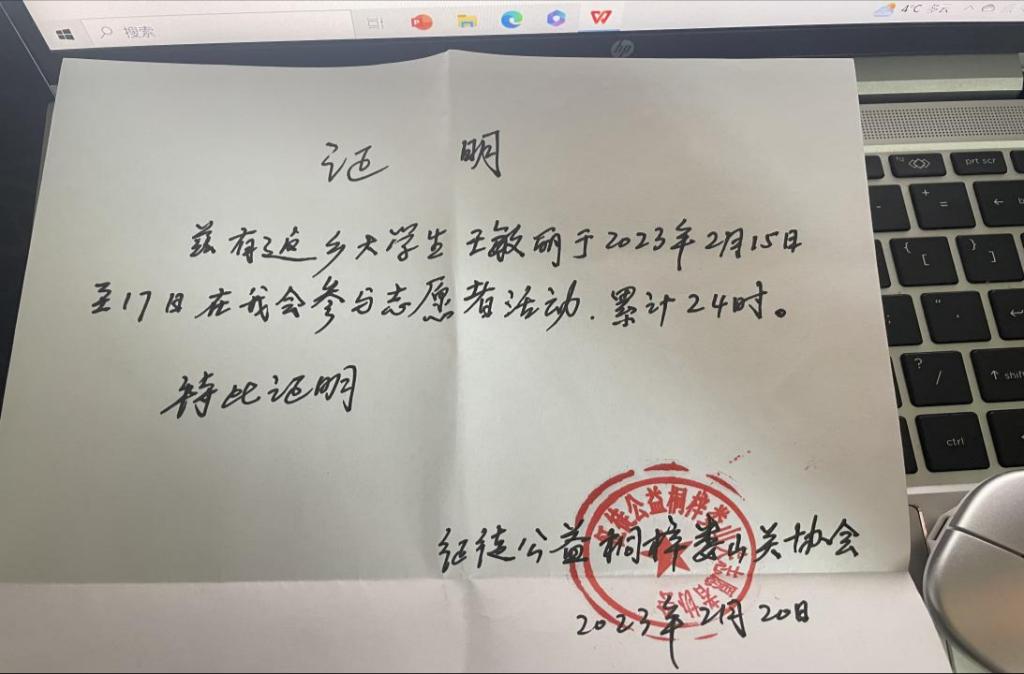 搜索
4°C 多云
hp
证 明
兹有返乡大学生王敏丽于2023年2月15日
至17日在我会参与志愿者活动.累计24时。
特此证明
征徒公益桐梓娄山关协会
2023年2月20日
徒公益桐梓娄山
协会
prt scr
+
=
-
{
[
}
]
"
?
/
↑ shift
ctrl